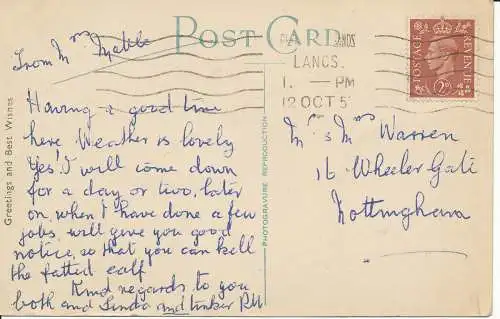 From Mrs Mabbe
POST CARD
LANCS.
1. — PM
12 OCT 5
POSTAGE
REVENUE
2D
Greetings and Best Wishes
PHOTOGRAVURE REPRODUCTION
Having a good time
here, Weather is lovely
Yes I will come down
for a day or two, later
on, when I have done a few
jobs. will give you good
notice, so that you can kill
the fatted calf
Kind regards to you
both and Linda and
Mr & Mrs Warren
16 Wheeler Gate
Nottingham